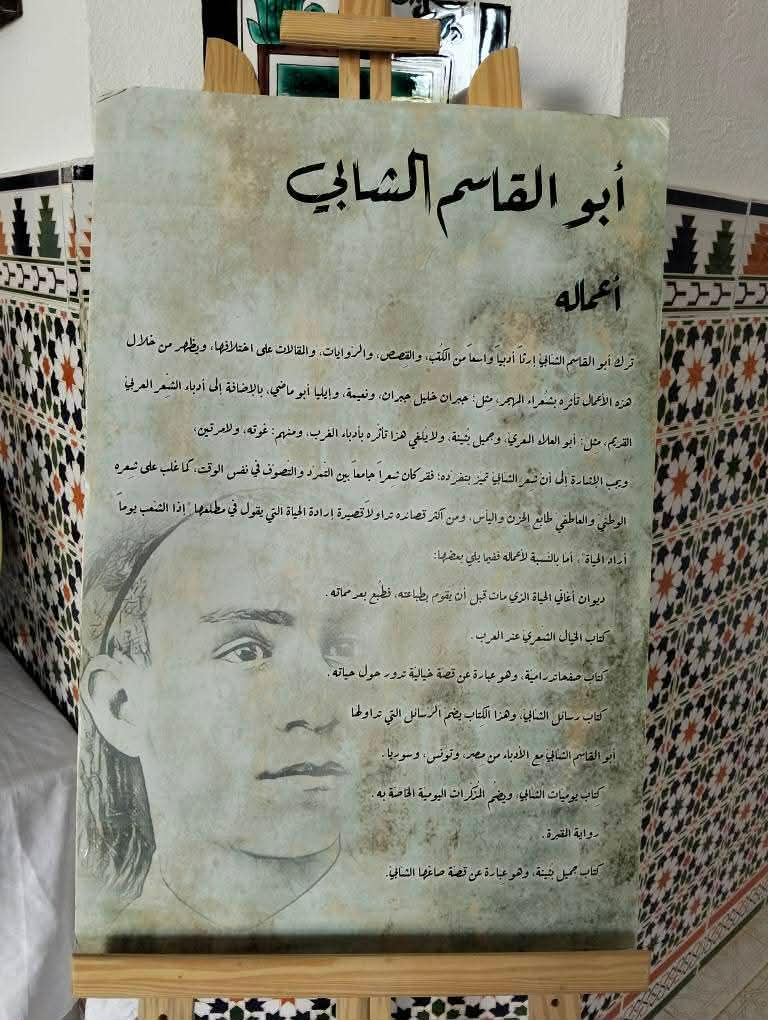 أبو القاسم الشابي
أعماله
ترك أبو القاسم الشابيّ إرثاً أدبياً واسعاً من الكُتب، والقصص، والرّوايات، والمقالات على اختلافها، ويظهر من خلال
هذه الأعمال تأثره بشعراء المهجر، مثل: جبران خليل جبران، ونعيمة، وإيليا أبو ماضي، بالإضافة إلى أدباء الشّعر العربيّ
القديم، مثل: أبو العلاء المعري، وجميل بُثينة، ولا يلغي هذا تأثّره بأدباء الغرب، ومنهم: غوته، ولامرتين،
ويجب الإشارة إلى أن شعر الشّابيّ تميّز بتفرّده؛ فقد كان شعراً جامعاً بين التّمرّد والتّصوف في نفس الوقت، كما غلب على شعره
الوطنيّ والعاطفي طابع الحزن واليأس، ومن أكثر قصائده تداولاً قصيرة إرادة الحياة التي يقول في مطلعها "إذا الشّعب يوماً
أراد الحياة"، أما بالنسبة لأعماله فيما يلي بعضها:
ديوان أغاني الحياة الذي مات قبل أن يقوم بطباعته، فطُبع بعد مماته.
كتاب الخيال الشّعري عند العرب.
كتاب صفحات دراميّة، وهو عبارة عن قصّة خياليّة تدور حول حياته.
كتاب رسائل الشّابيّ، وهذا الكتاب يضم الرّسائل التي تداولها
أبو القاسم الشّابي مع الأدباء من مصر، وتونس، وسوريا.
كتاب يوميات الشّابي، ويضُم المُذكّرات اليومية الخاصة به.
رواية المقبرة.
كتاب جميل بثينة، وهو عبارة عن قصّة صاغها الشّابيّ.